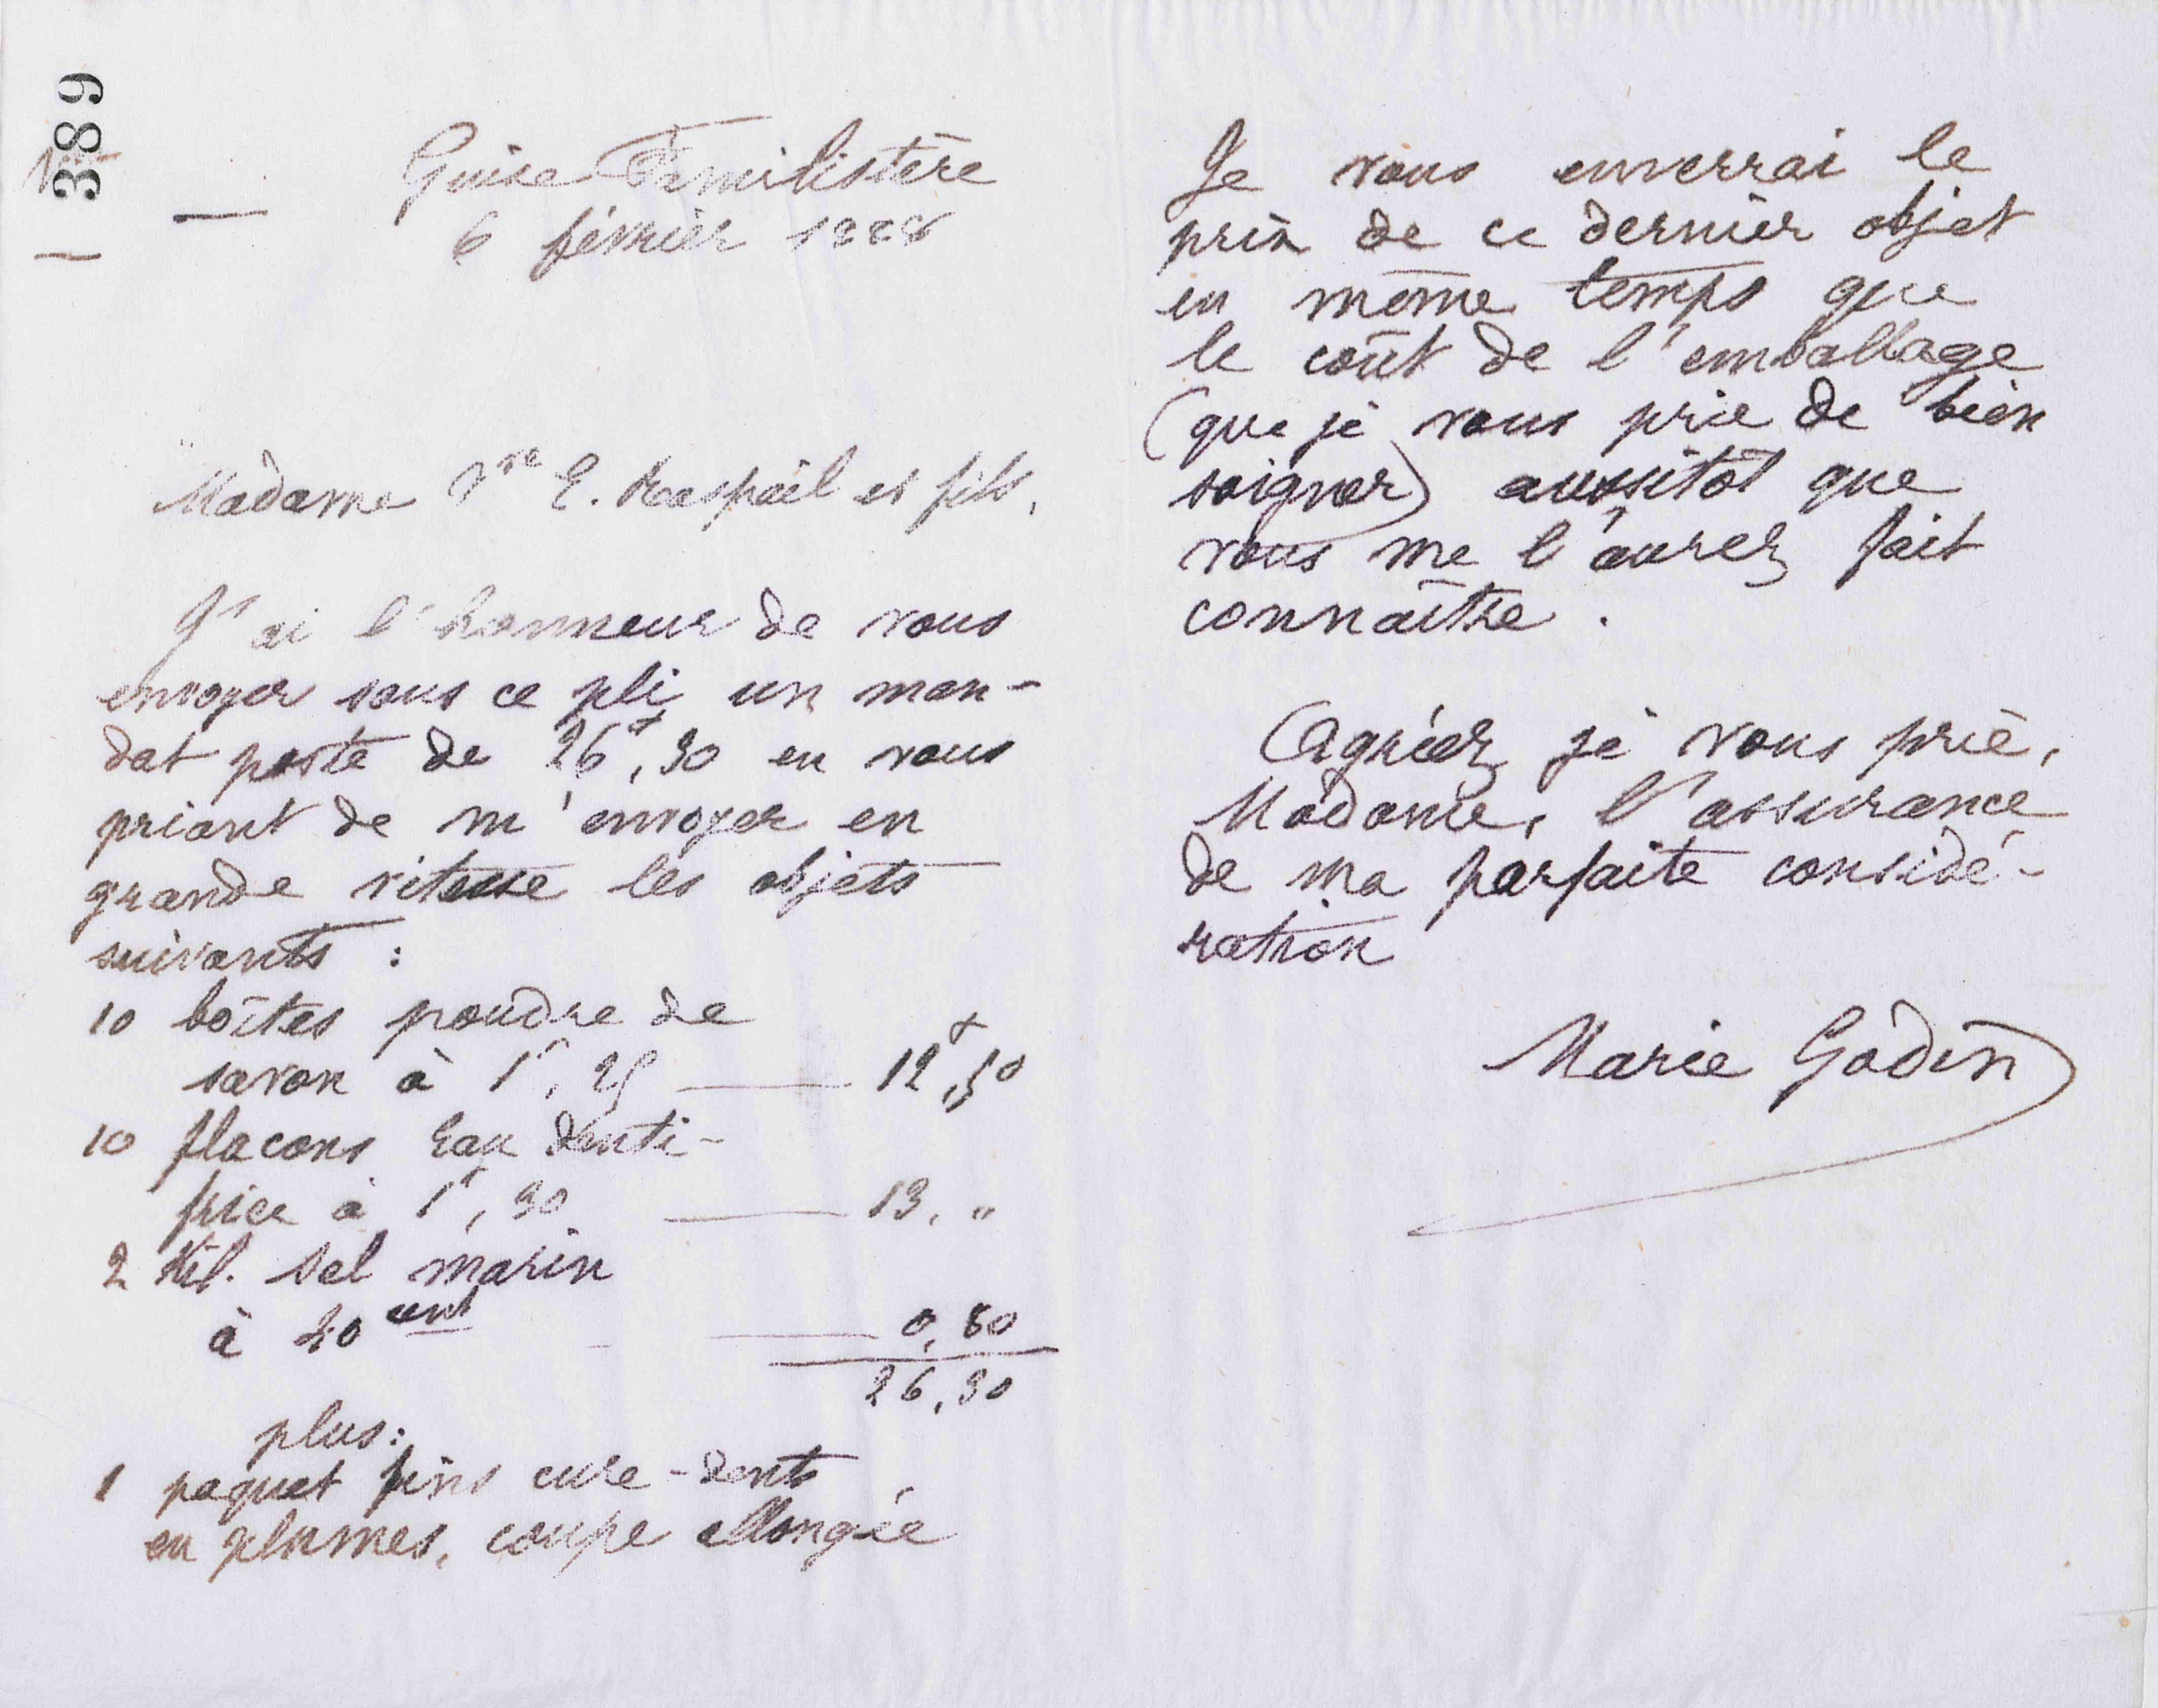 389
Guise Familistère
6 février 1888
Madame Vve E. Raspail et fils,
J'ai l'honneur de vous
envoyer sous ce pli un man-
dat poste de 26f,30 en vous
priant de m'envoyer en
grande vitesse les objets
suivants :
10 boîtes poudre de
savon à 1f,25 — 12f,50
10 flacons Eau denti-
frice à 1f,30 — 13, "
2 Kil. sel marin
à 40 cent — 0,80
26,30
plus :
1 paquet fins cure-dents
en plumes, coupe allongée
Je vous enverrai le
prix de ce dernier objet
en même temps que
le coût de l'emballage
(que je vous prie de bien
soigner) aussitôt que
vous me l'aurez fait
connaître.
Agréez, je vous prie,
Madame, l'assurance
de ma parfaite considé-
ration
Marie Godin